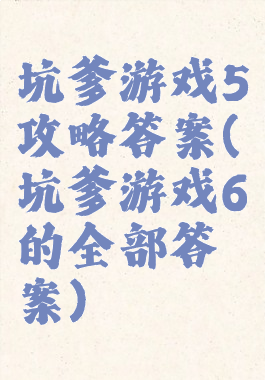 坑爹游戏5
攻略答案(
坑爹游戏6
的全部答
案)